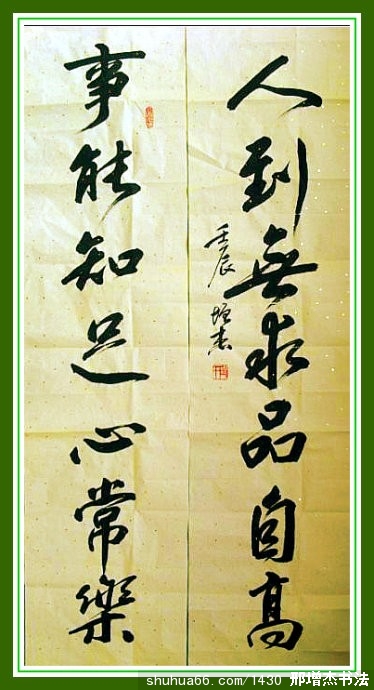 人到無求品自高
壬辰 增杰
事能知足心常樂
shuhua66.com/1430 邢增杰书法